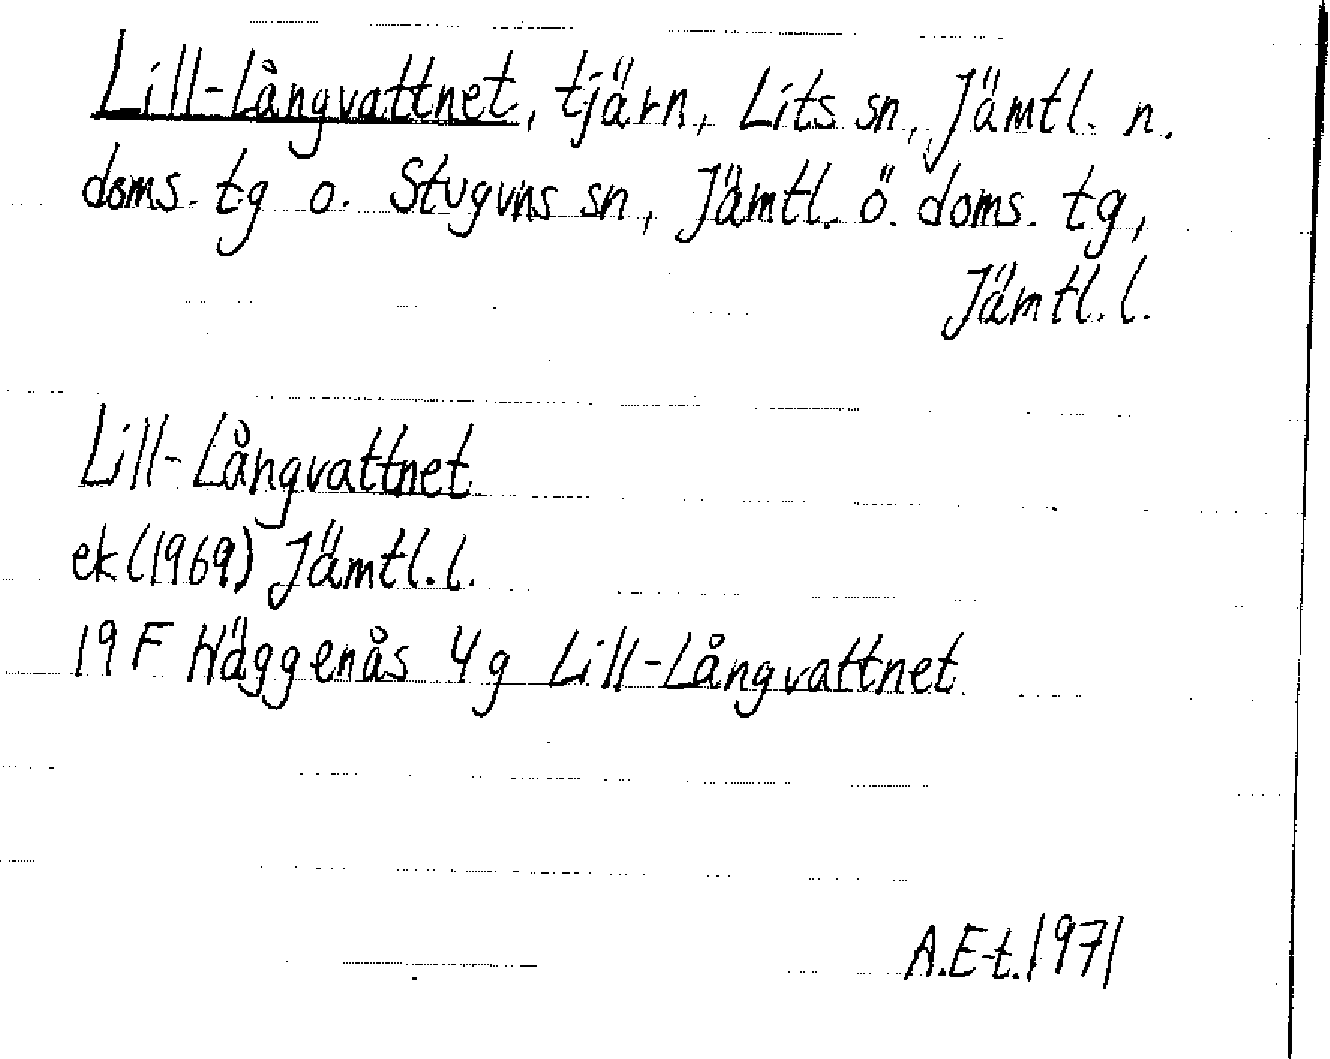 Lill-Långvattnet, tjärn, Lits sn, Jämtl. n.
doms. tg o. Stuguns sn, Jämtl. ö. doms. tg,
Jämtl. l.
Lill-Långvattnet
ek (1969) Jämtl. l.
19 F Häggenås 4 g Lill-Långvattnet
A.E-t. 1971